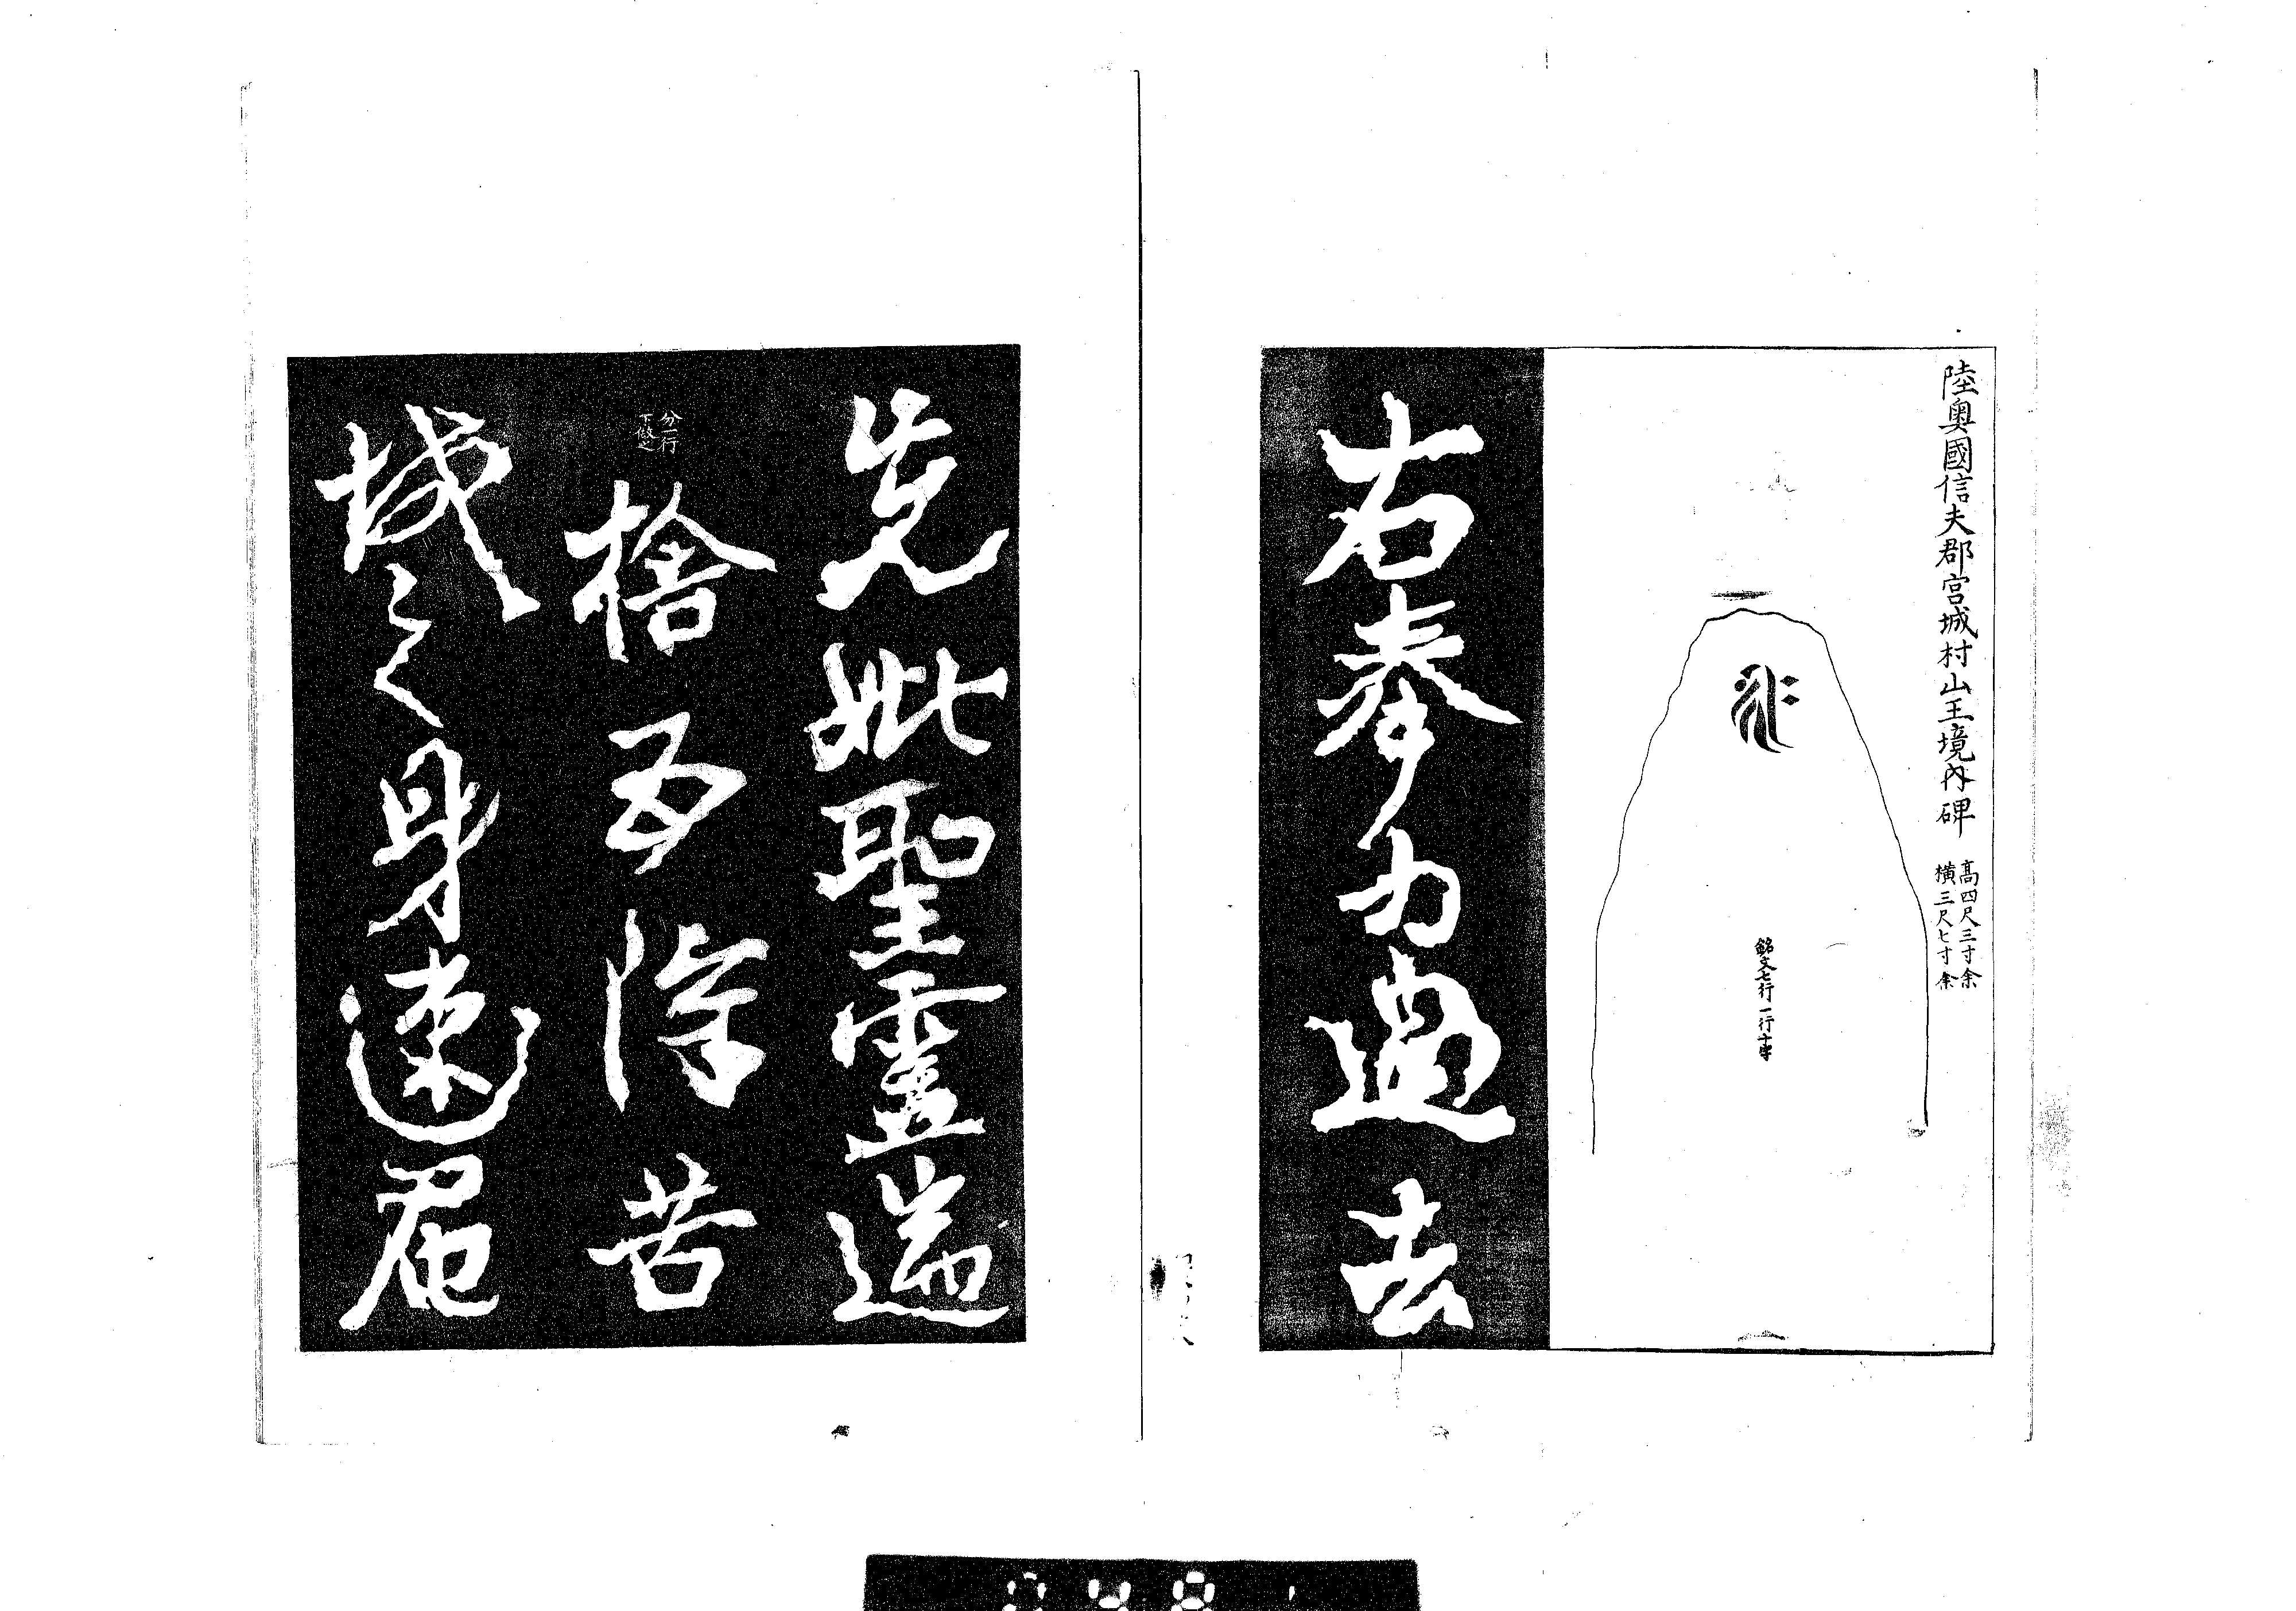 陸奥國信夫郡宮城村山王境内碑
高四尺三寸余
横三尺七寸余
銘文七行一行十字
右奉為過去
先妣聖霊遄
分一行
下倣之
捨五陰苦
域之身速